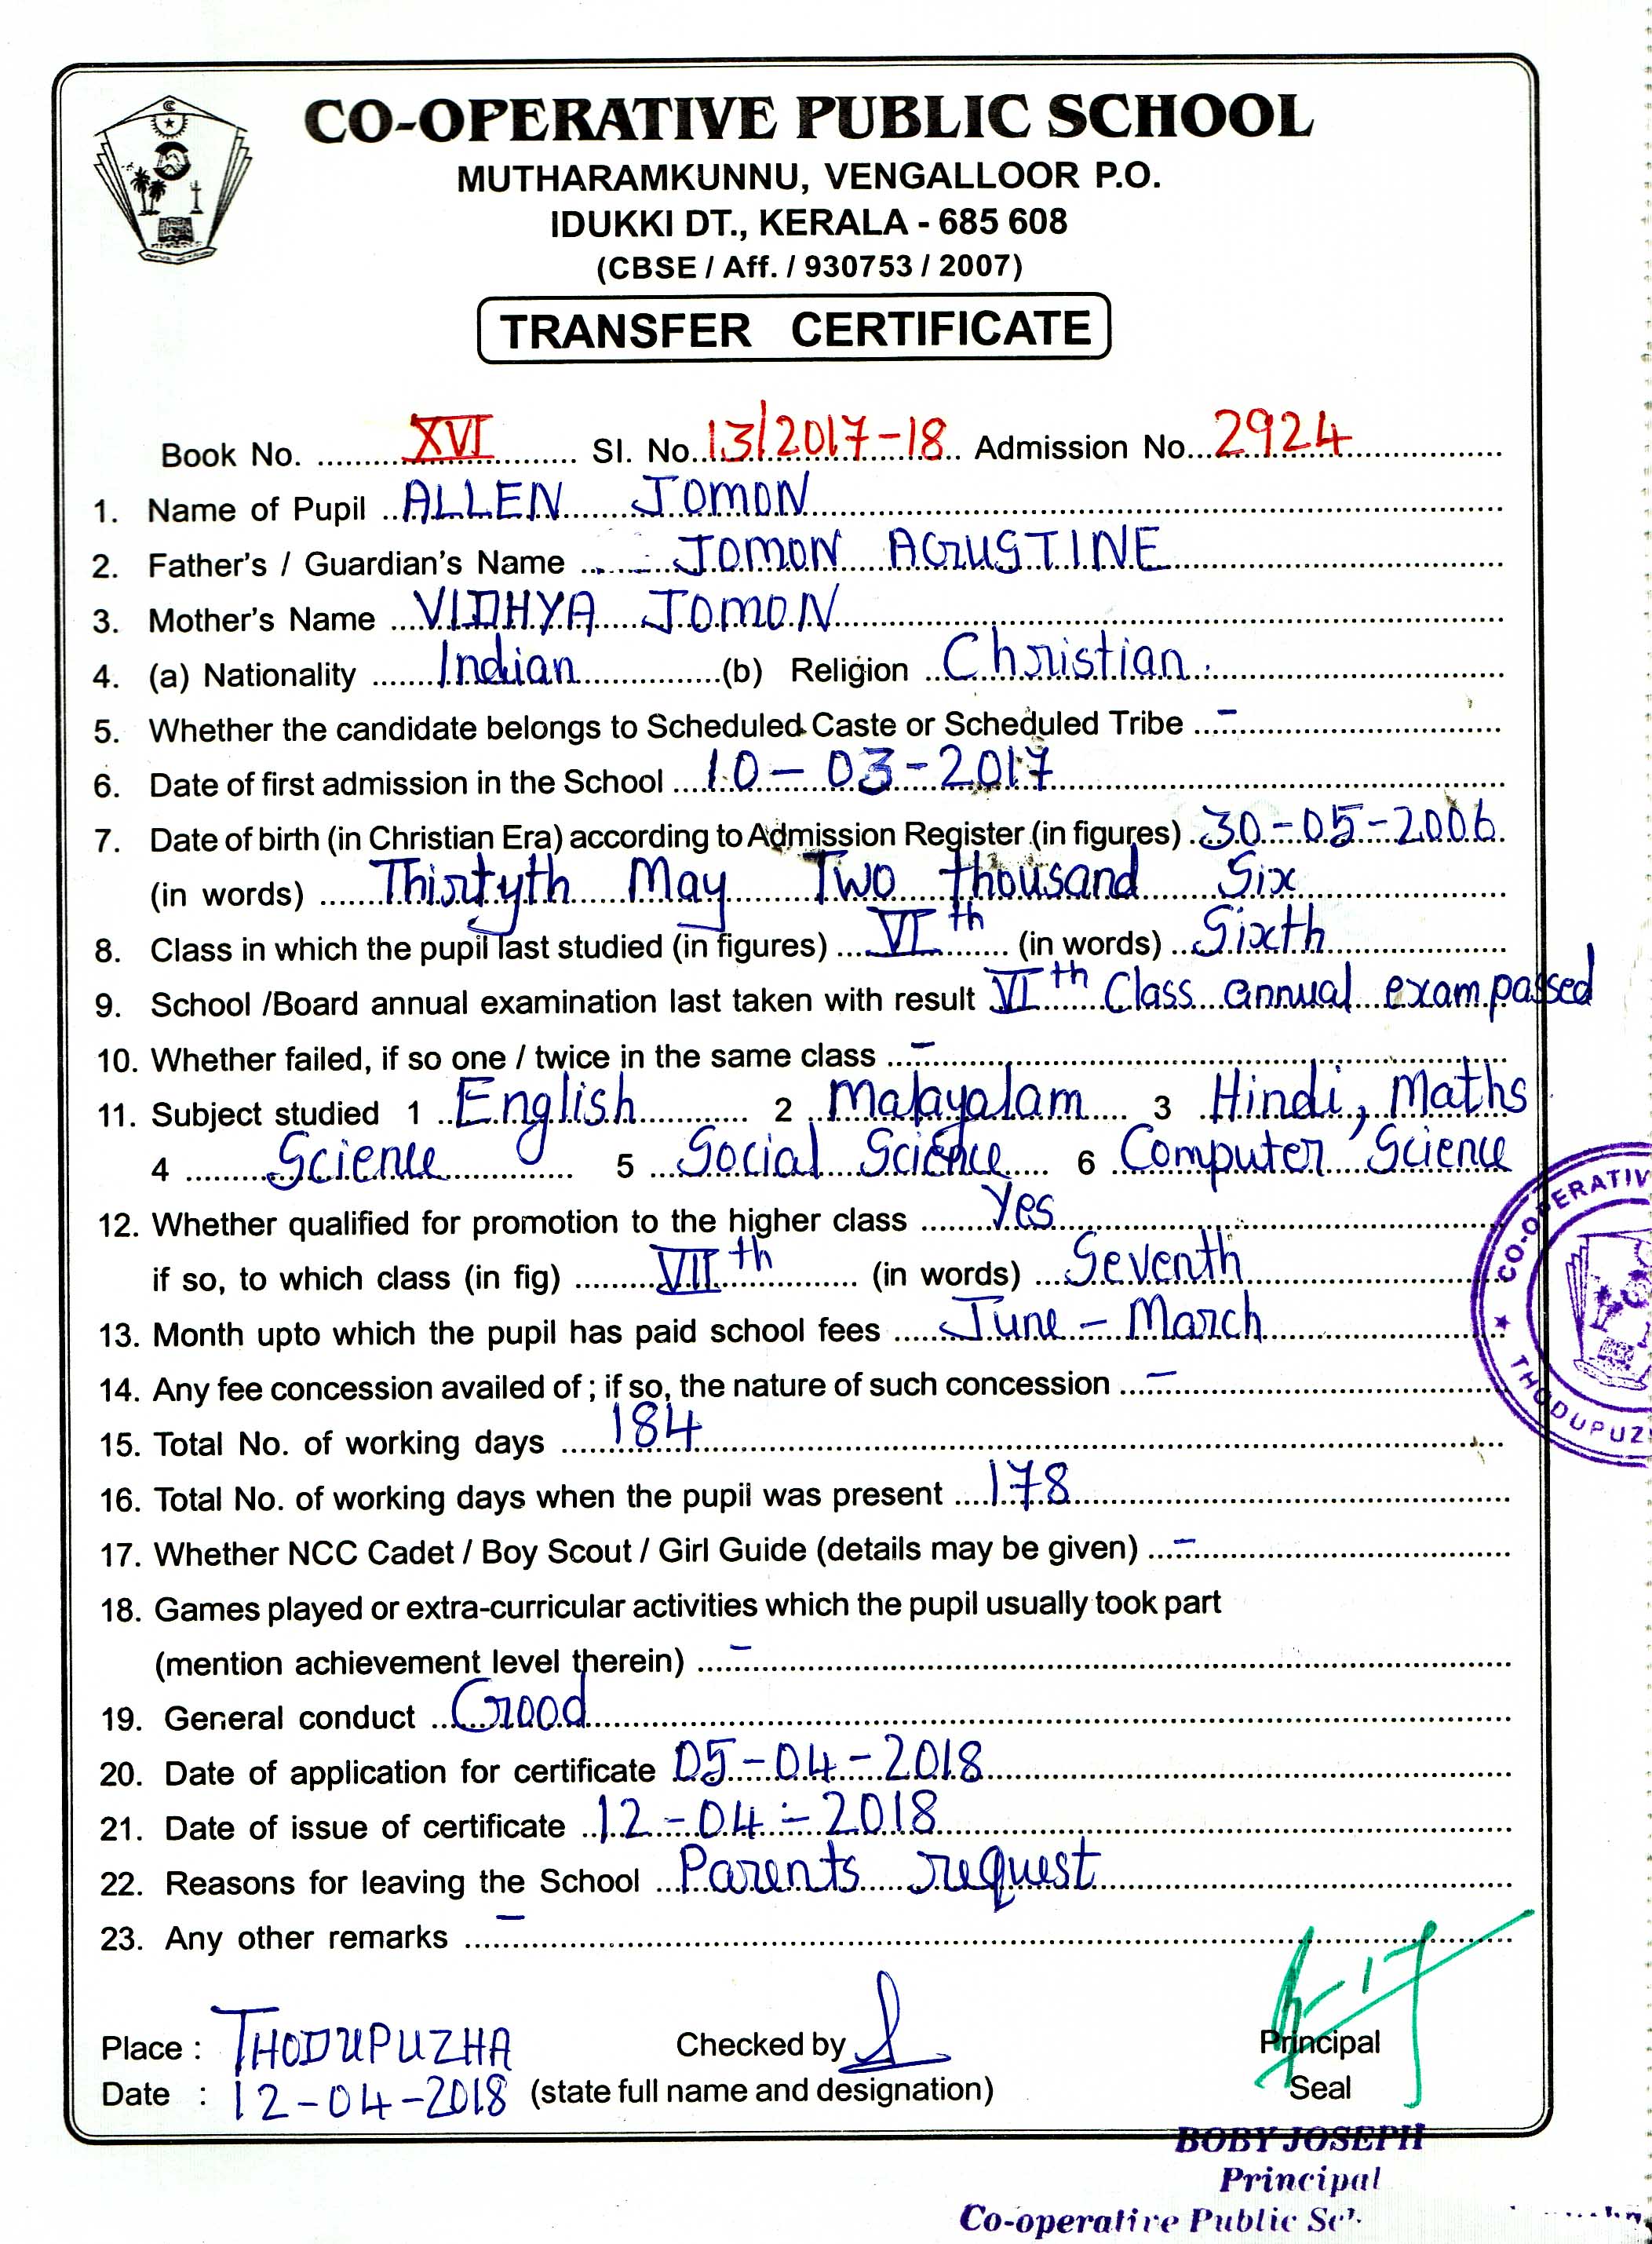 CO-OPERATIVE PUBLIC SCHOOL
MUTHARAMKUNNU, VENGALLOOR P.O.
IDUKKI DT., KERALA - 685 608
(CBSE / Aff. / 930753 / 2007)
TRANSFER CERTIFICATE
Book No. XVI Sl. No. 13/2017-18 Admission No. 2924
1. Name of Pupil ALLEN JOMON
2. Father's / Guardian's Name JOMON AGUSTINE
3. Mother's Name VIDHYA JOMON
4. (a) Nationality Indian (b) Religion Christian.
5. Whether the candidate belongs to Scheduled Caste or Scheduled Tribe -
6. Date of first admission in the School 10-03-2017
7. Date of birth (in Christian Era) according to Admission Register (in figures) 30-05-2006
(in words) Thirtyth May Two thousand Six
8. Class in which the pupil last studied (in figures) VIth (in words) Sixth
9. School /Board annual examination last taken with result VIth Class annual exam passed
10. Whether failed, if so one / twice in the same class -
11. Subject studied 1 English 2 Malayalam 3 Hindi, Maths
4 Science 5 Social Science 6 Computer Science
12. Whether qualified for promotion to the higher class Yes
if so, to which class (in fig) VIIth (in words) Seventh
13. Month upto which the pupil has paid school fees June - March
14. Any fee concession availed of ; if so, the nature of such concession -
15. Total No. of working days 184
16. Total No. of working days when the pupil was present 178
17. Whether NCC Cadet / Boy Scout / Girl Guide (details may be given) -
18. Games played or extra-curricular activities which the pupil usually took part
(mention achievement level therein) -
19. General conduct Good
20. Date of application for certificate 05-04-2018
21. Date of issue of certificate 12-04-2018
22. Reasons for leaving the School Parents request
23. Any other remarks -
CO-OPERATIV
THODUPUZ
Place : THODUPUZHA Checked by Principal
Date : 12-04-2018 (state full name and designation) Seal
BOBY JOSEPH
Principal
Co-operative Public